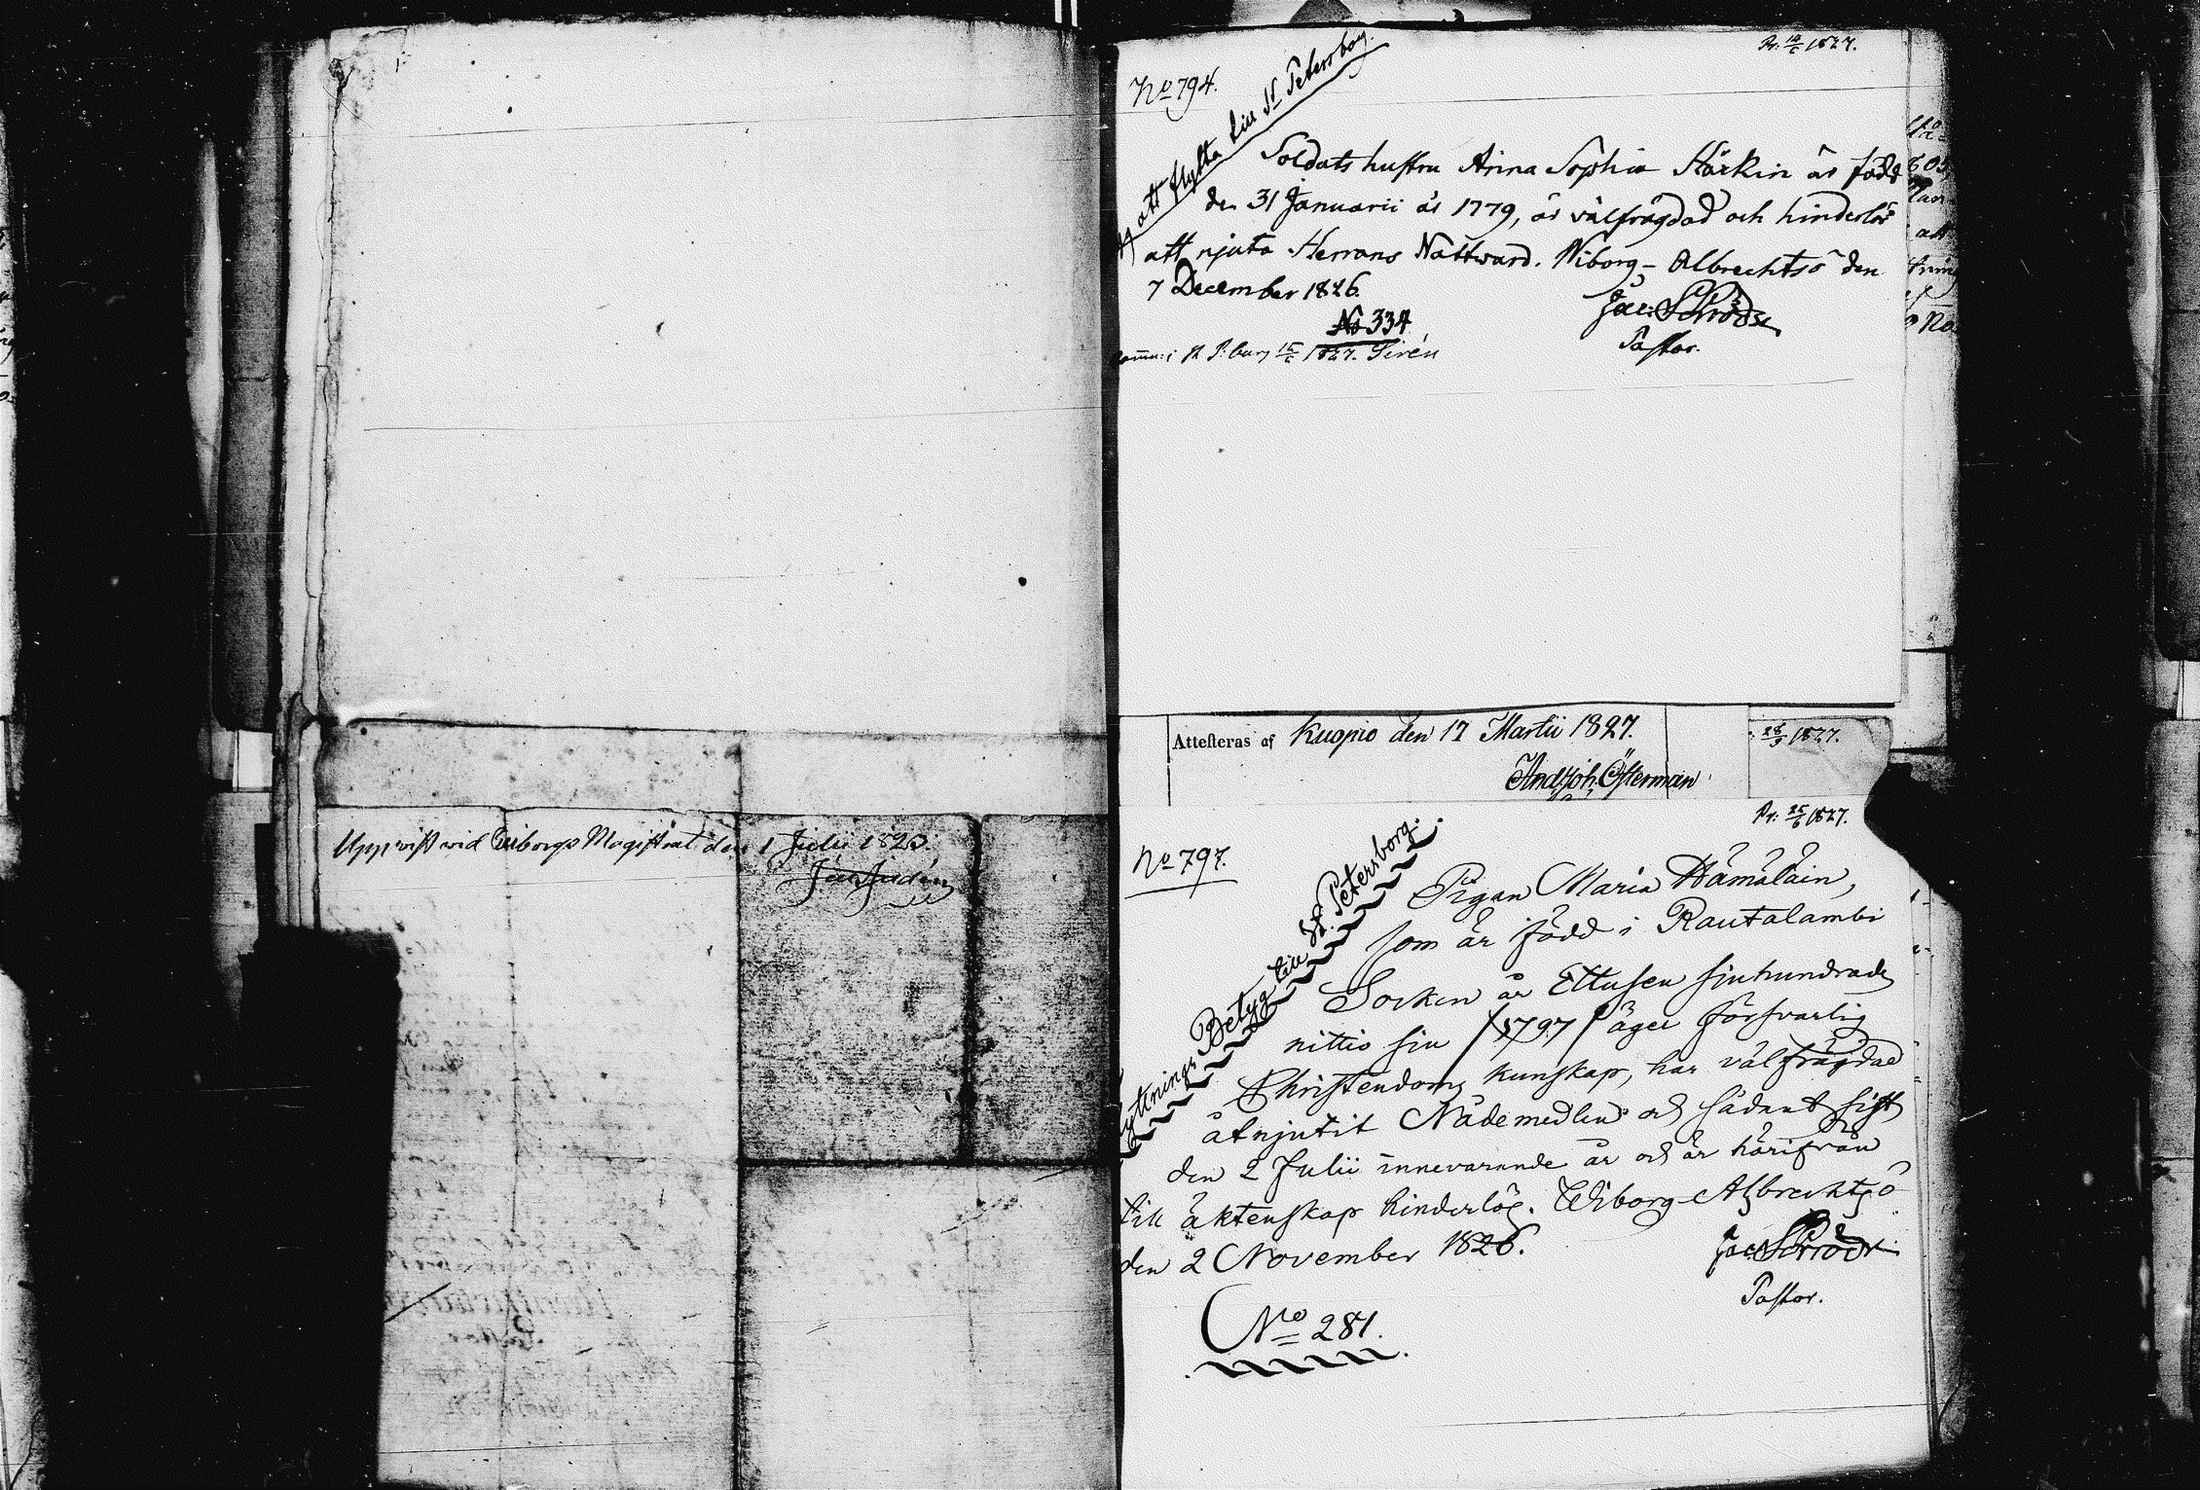 Uppvist vid Wiborgs Magistrat den 1 Julii 1825.
No 794.
Pr. 14/6 1827.
att flytta till St Petersborg.
Soldats hustru Anna Sophia Härkin är född
den 31 Januarii år 1779, är välfrägdad och hinderlös
att njuta Herrans Nattvard. Wiborg-Albrechtsö den
7 December 1826.
Jac: Schröder
Pastor.
No 334
comm: i St P:burg 15/6 1827. Sirén
Attesteras af Kuopio den 17 Martii 1827.
And Joh. Österman
28/3 1827.
Pr: 25/6 1827.
No 797.
Flyttnings Betyg till St. Petersborg.
Pigan Maria Hämäläin,
som är född i Rautalambi
Socken år Ettusen sjuhundrade
nittio sju /1797/ äger försvarlig
Christendoms kunskap, har välfrägdad
åtnjutit Nådemedlen och sådant sist
den 2 Julii innevarande år och är härifrån
till äktenskap hinderlös. Wiborg-Albrechtsö
den 2 November 1826.
Jac: Schröder
Pastor.
No 281.